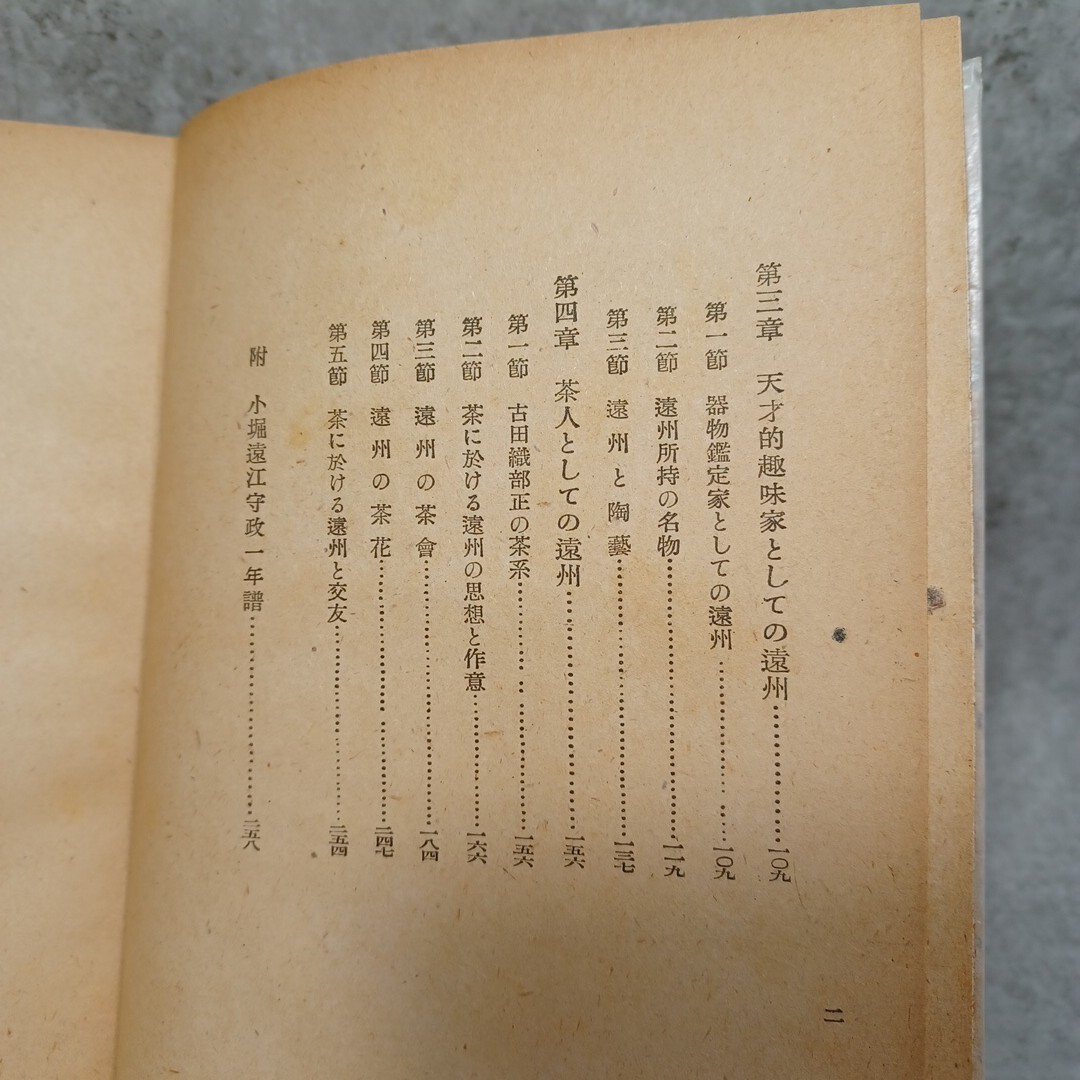 第三章 天才的趣味家としての遠州……………一〇九
第一節 器物鑑定家としての遠州……………一〇九
第二節 遠州所持の名物……………一一九
第三節 遠州と陶藝……………一三七
第四章 茶人としての遠州……………一五六
第一節 古田織部正の茶系……………一五六
第二節 茶に於ける遠州の思想と作意……………一六六
第三節 遠州の茶會……………一八四
第四節 遠州の茶花……………二四七
第五節 茶に於ける遠州と交友……………二五四
附 小堀遠江守政一年譜……………二五八
二